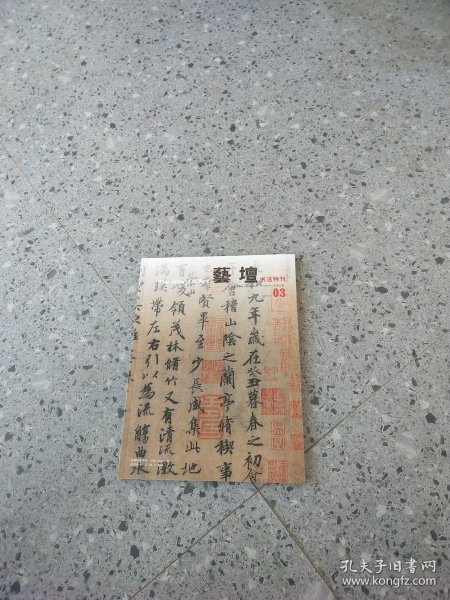 藝壇
书法特刊
03
九年歲在癸丑暮春之初會
會稽山陰之蘭亭脩稧事
羣賢畢至少長咸集此地
崇山
有峻領茂林脩竹又有清流激
湍暎帶左右引以為流觴曲水
孔夫子旧书网
www.kongfz.com